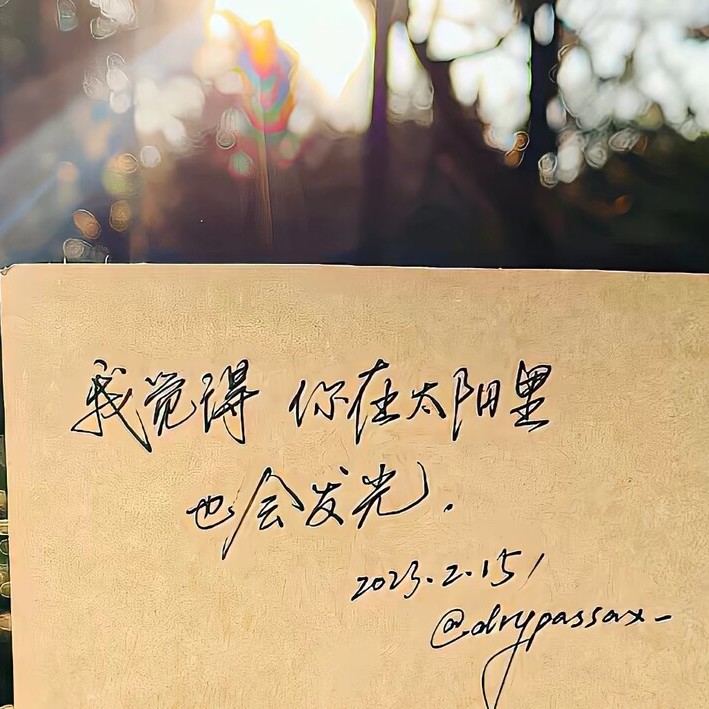 我觉得 你在太阳里
也会发光.
2023.2.15/
@drypassax-